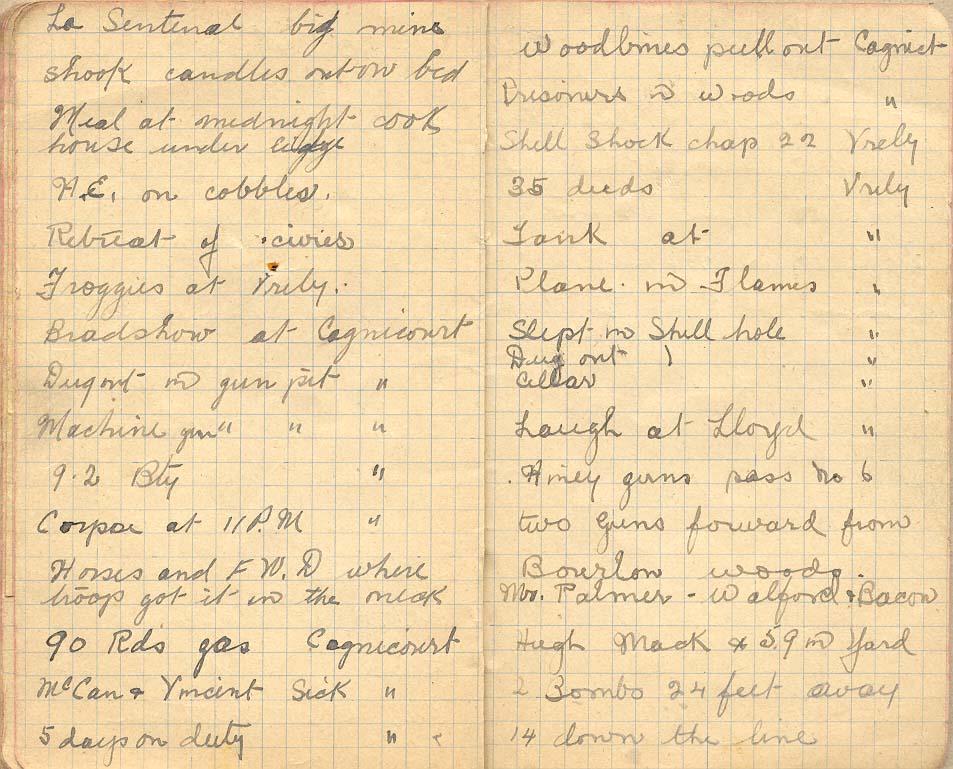 La Sentenal big mine
shook candles out on bed
Meal at midnight cook
house under
H.E. on cobbles.
Retreat of civies
Froggies at Vrely.
Bradshow at Cagnicourt
Dugout in gun pit "
Machine gun " " "
9.2 Bty "
Corpse at 11 P.M "
Horses and F.W.D where
troops got it in the neck
90 Rds gas Cagnicourt
McCan & Vincint Sick "
5 days on duty "
Woodbines pull out Cagnict
Prisoners in woods "
Shell Shock chap 22 Vrely
35 deeds Vrely
Tank at "
Plane in Flames "
Slept in Shell hole "
Dug out ) "
Cellar "
Laugh at Lloyd "
Hiney guns pass No 6
two guns forward from
Bourlon woods.
Mr. Palmer - Walford & Bacon
Hugh Mack & 5.9 in Yard
2 Bombs 24 feet away
14 down the line